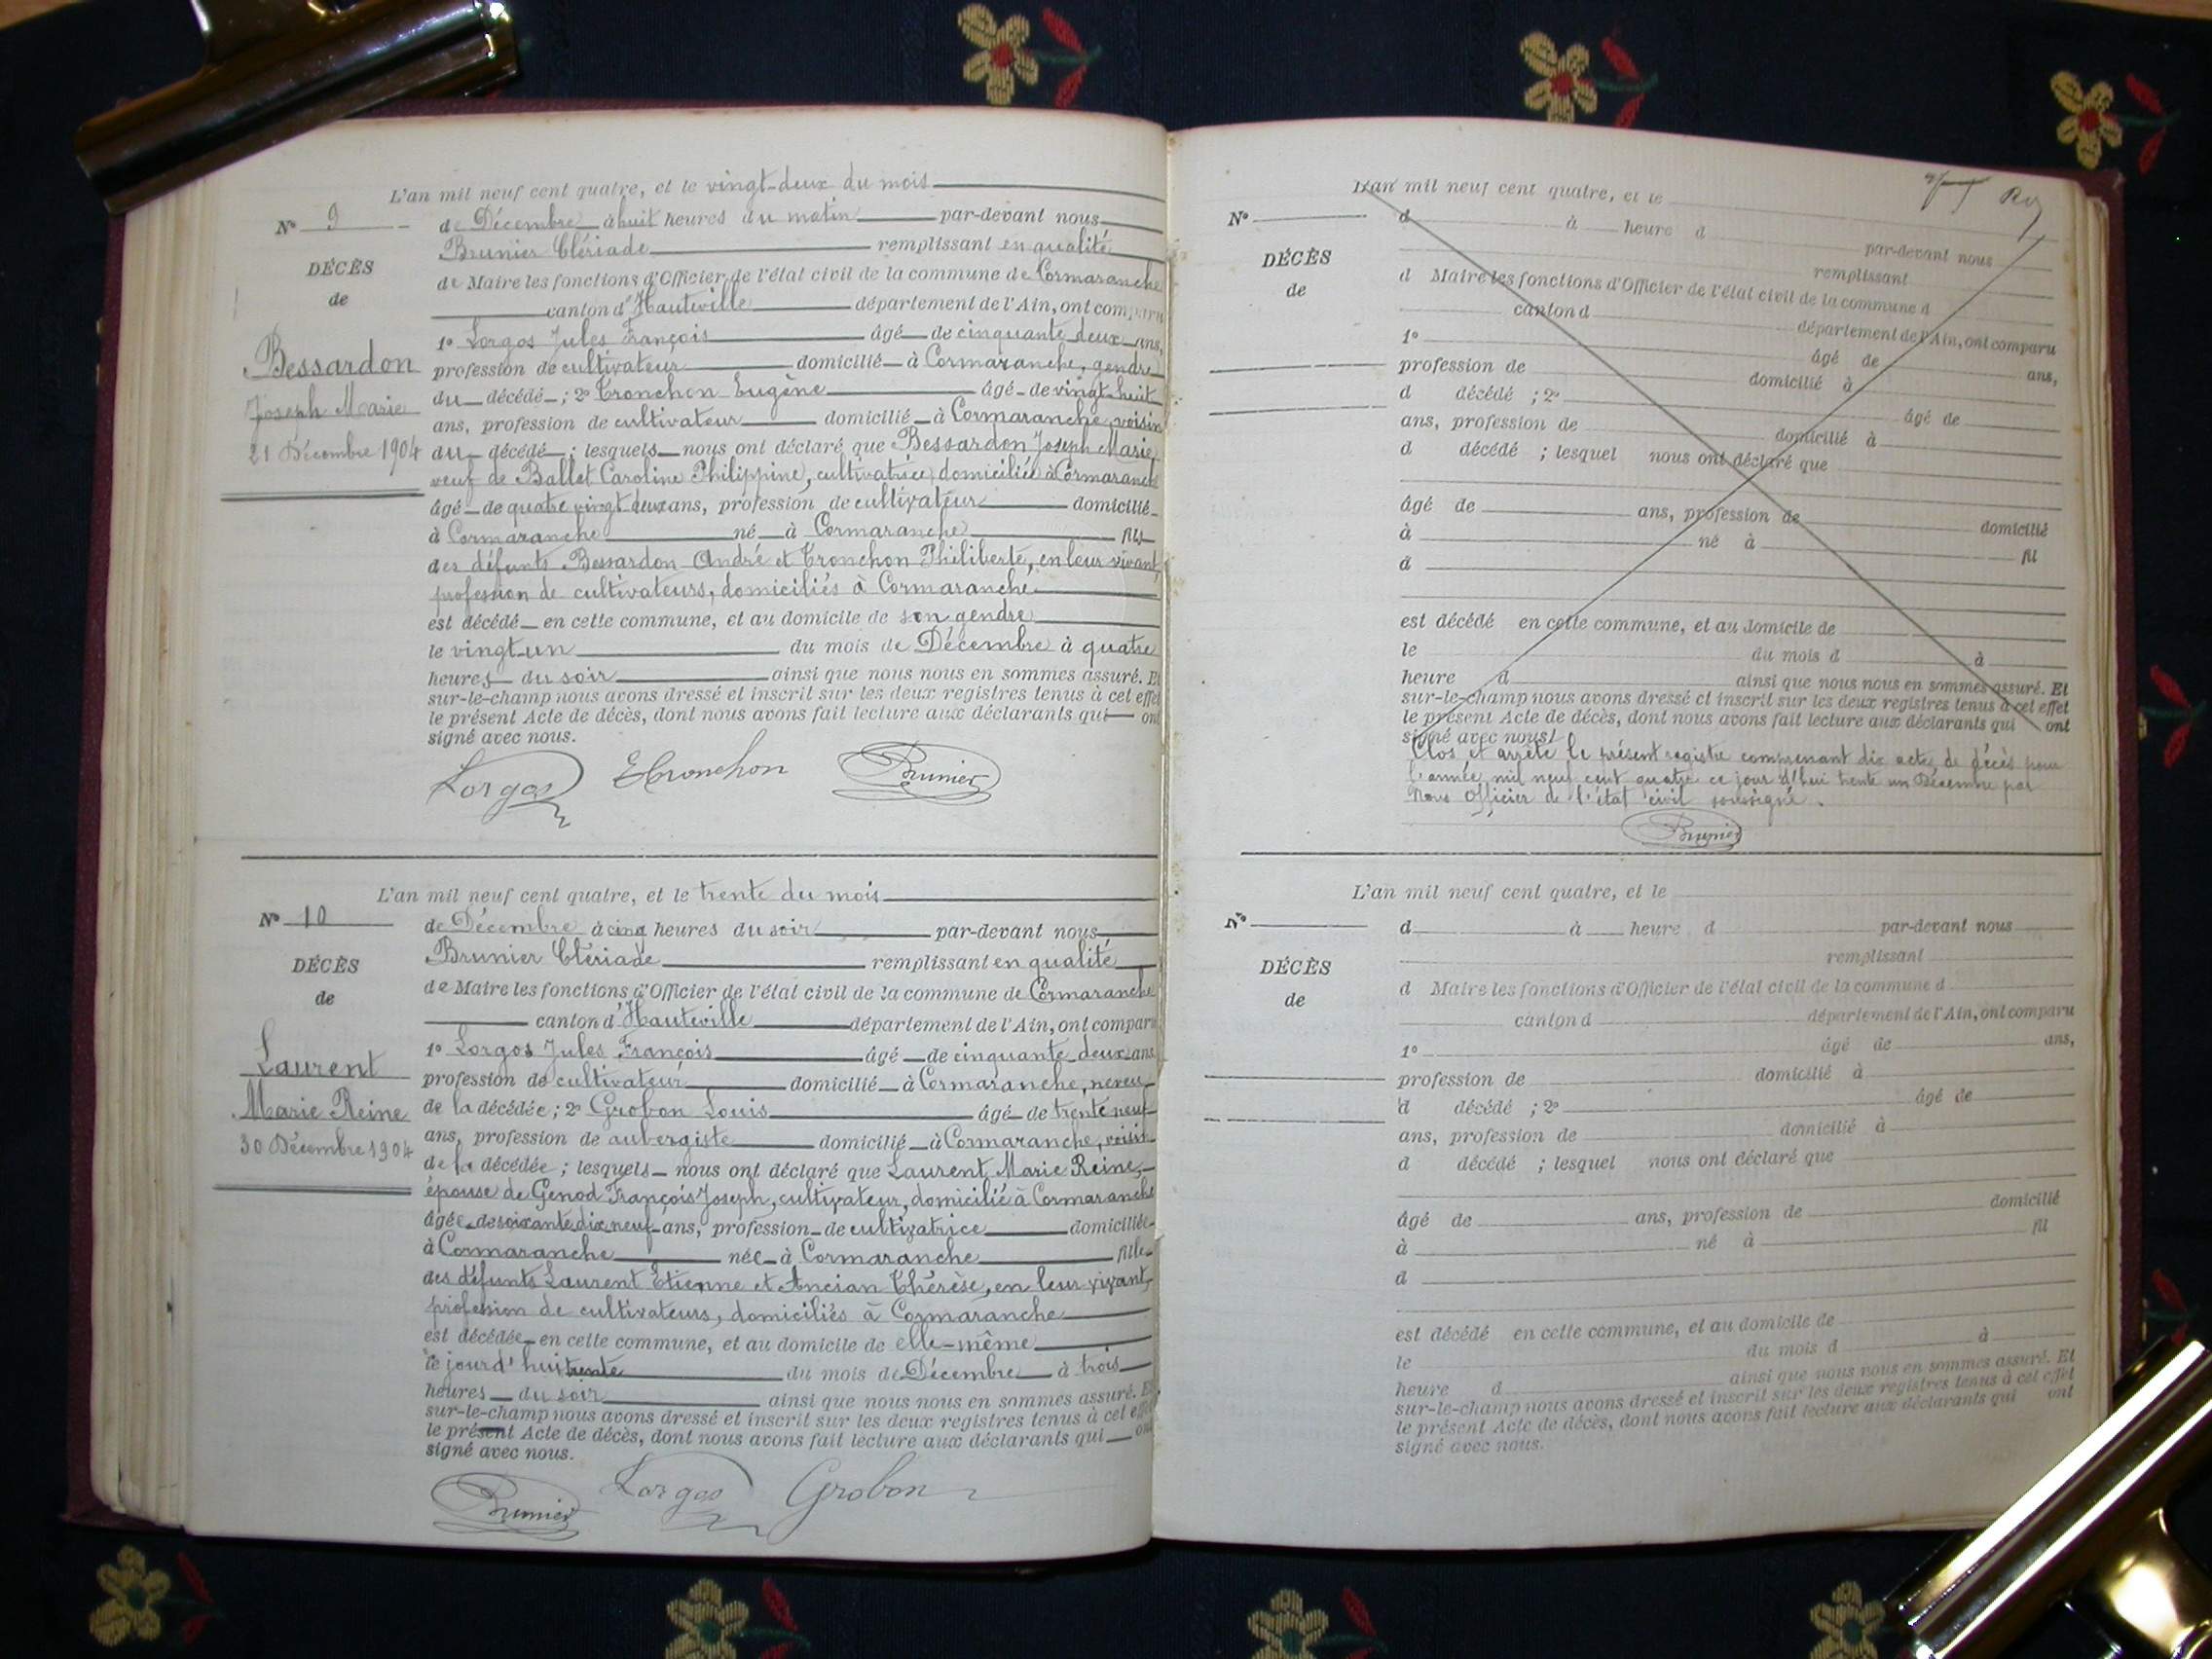 L'an mil neuf cent quatre, et le vingt-deux du mois
N° 9
de Décembre à huit heures du matin par-devant nous
Brunier Clériade remplissant en qualité
DÉCÈS
de
de Maire les fonctions d'Officier de l'état civil de la commune de Cormaranche
canton d'Hauteville département de l'Ain, ont comparu
1° Lorgos Jules François âgé de cinquante deux ans,
Bessardon
Joseph Marie
21 Décembre 1904
profession de cultivateur domicilié à Cormaranche, gendre
du décédé ; 2° Tronchon Eugène âgé de vingt huit
ans, profession de cultivateur domicilié à Cormaranche, voisin
du décédé ; lesquels nous ont déclaré que Bessardon, Joseph Marie
veuf de Ballet Caroline Philippine, cultivatrice, domiciliée à Cormaranche
âgé de quatre vingt deux ans, profession de cultivateur domicilié
à Cormaranche né à Cormaranche fils
des défunts Bessardon André et Tronchon Philiberte, en leur vivant,
profession de cultivateurs, domiciliés à Cormaranche
est décédé en cette commune, et au domicile de son gendre
le vingt-un du mois de Décembre à quatre
heures du soir ainsi que nous nous en sommes assuré. Et
sur-le-champ nous avons dressé et inscrit sur les deux registres tenus à cet effet
le présent Acte de décès, dont nous avons fait lecture aux déclarants qui ont
signé avec nous.
Lorgos ETronchon Brunier
L'an mil neuf cent quatre, et le trente du mois
N° 10
de Décembre à cinq heures du soir par-devant nous
Brunier Clériade remplissant en qualité
DÉCÈS
de
de Maire les fonctions d'Officier de l'état civil de la commune de Cormaranche
canton d'Hauteville département de l'Ain, ont comparu
1° Lorgos Jules François âgé de cinquante deux ans
Laurent
Marie Reine
30 Décembre 1904
profession de cultivateur domicilié à Cormaranche, neveu
de la décédée ; 2° Grobon Louis âgé de trente neuf
ans, profession de aubergiste domicilié à Cormaranche, voisin
de la décédée ; lesquels nous ont déclaré que Laurent Marie Reine,
épouse de Genod François Joseph, cultivateur, domicilié à Cormaranche
âgée de soixante dix neuf ans, profession de cultivatrice domiciliée
à Cormaranche née à Cormaranche fille
des défunts Laurent Etienne et Ancian Thérèse, en leur vivant,
profession de cultivateurs, domiciliés à Cormaranche
est décédée en cette commune, et au domicile de elle-même
le jourd'hui trente du mois de Décembre à trois
heures du soir ainsi que nous nous en sommes assuré. Et
sur-le-champ nous avons dressé et inscrit sur les deux registres tenus à cet effet
le présent Acte de décès, dont nous avons fait lecture aux déclarants qui ont
signé avec nous.
Brunier Lorgos Grobon
L'an mil neuf cent quatre, et le
N°
d à heure d par-devant nous
remplissant
DÉCÈS
de
d Maire les fonctions d'Officier de l'état civil de la commune d
canton d département de l'Ain, ont comparu
1° âgé de ans,
profession de domicilié à
d décédé ; 2° âgé de
ans, profession de domicilié à
d décédé ; lesquel nous ont déclaré que
âgé de ans, profession de domicilié
à né à fil
d
est décédé en cette commune, et au domicile de
le du mois d à
heure d ainsi que nous nous en sommes assuré. Et
sur-le-champ nous avons dressé et inscrit sur les deux registres tenus à cet effet
le présent Acte de décès, dont nous avons fait lecture aux déclarants qui ont
signé avec nous.
Clos et arrêté le présent registre comprenant dix actes de décès pour
l'année mil neuf cent quatre ce jour d'hui trente un Décembre par
Nous Officier de l'état civil soussigné.
Brunier
L'an mil neuf cent quatre, et le
N°
d à heure d par-devant nous
remplissant
DÉCÈS
de
d Maire les fonctions d'Officier de l'état civil de la commune d
canton d département de l'Ain, ont comparu
1° âgé de ans,
profession de domicilié à
d décédé ; 2° âgé de
ans, profession de domicilié à
d décédé ; lesquel nous ont déclaré que
âgé de ans, profession de domicilié
à né à fil
d
est décédé en cette commune, et au domicile de
le du mois d à
heure d ainsi que nous nous en sommes assuré. Et
sur-le-champ nous avons dressé et inscrit sur les deux registres tenus à cet effet
le présent Acte de décès, dont nous avons fait lecture aux déclarants qui ont
signé avec nous.